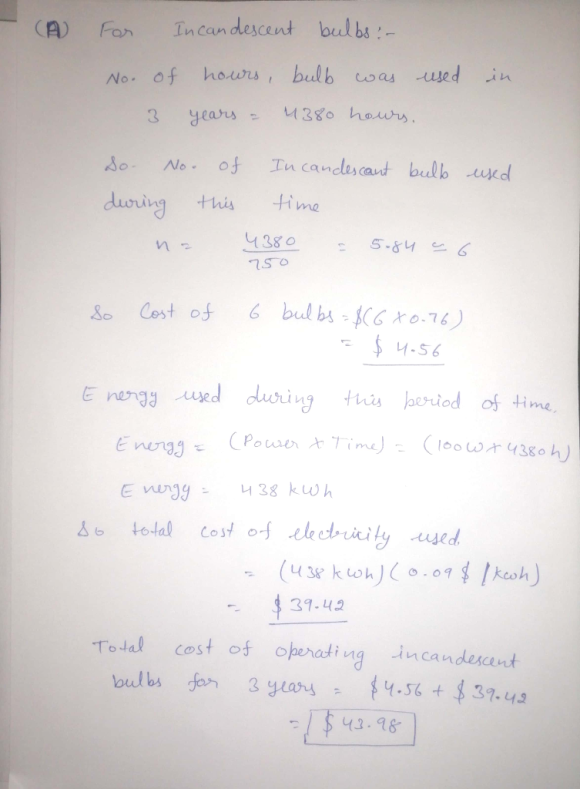 (A) For Incandescent bulbs:-
No. of hours, bulb was used in
3 years = 4380 hours.
So. No. of Incandescant bulb used
during this time
n = 4380/750 = 5.84 ≃ 6
So Cost of 6 bulbs = $(6 × 0.76)
= $ 4.56
Energy used during this period of time.
Energy = (Power × Time) = (100W × 4380h)
Energy = 438 kWh
So total cost of electricity used.
= (438 kWh) (0.09 $ / kwh)
= $ 39.42
Total cost of operating incandescent
bulbs for 3 years = $4.56 + $39.42
= $ 43.98